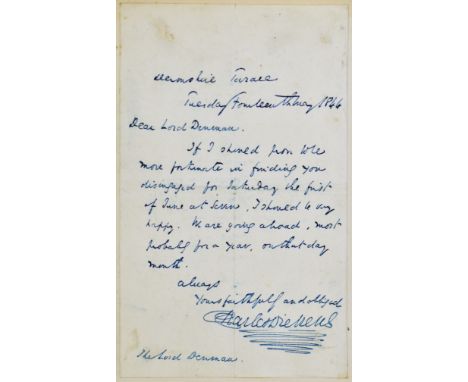 Devonshire Terrace
Tuesday Fourteenth May 1844
Dear Lord Denman.
If I should prove to be
more fortunate in finding you
disengaged for Saturday the first
of June at Seven, I should be very
happy. We are going abroad, most
probably for a year, on that day
month.
always
Yours faithfully and obliged
Charles Dickens
The Lord Denman.